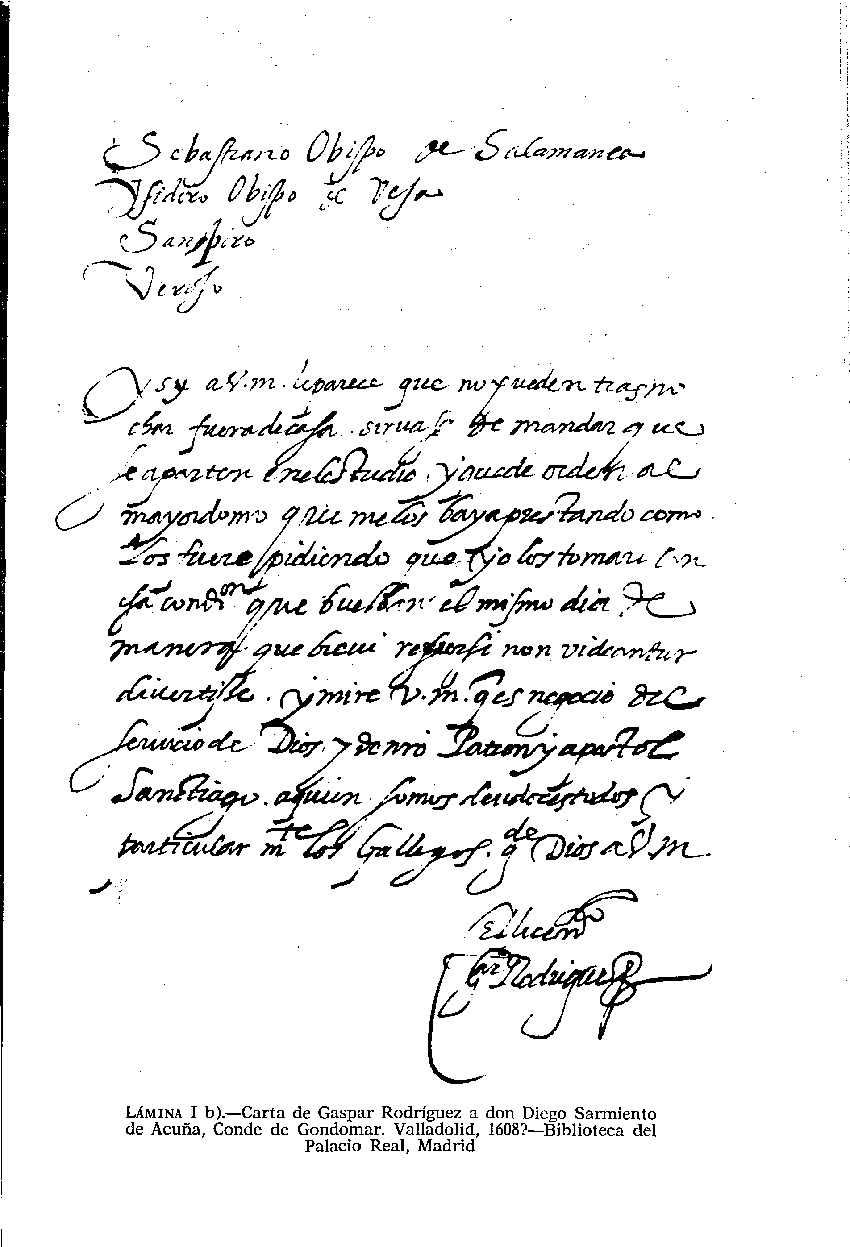 Sebastiano Obispo de Salamanca
Ysidiro Obispo de Beja
Sanpiro
Veroso
Y sy a V.m. le parece que no pueden trasno
char fuera de casa, siruase de mandar que
se aparten en el estudio, y quede orden al
mayordomo que me los baya prestando como
los fuere pidiendo que yo los tomare con
esa condiⁿ que buelban el mismo dia de
manera que breui reversi non videantur
divertisse. y mire V.m. q es negocio del
seruicio de Dios, y de nrō Patron y apostol
Sanctiago. a quien somos deudores todos y
particular mᵗᵉ los Gallegos. gᵈᵉ Dios a V.m.
El licenᵈᵒ
Gᵃʳ Rodriguez
LÁMINA I b).—Carta de Gaspar Rodríguez a don Diego Sarmiento
de Acuña, Conde de Gondomar. Valladolid, 1608?—Biblioteca del
Palacio Real, Madrid